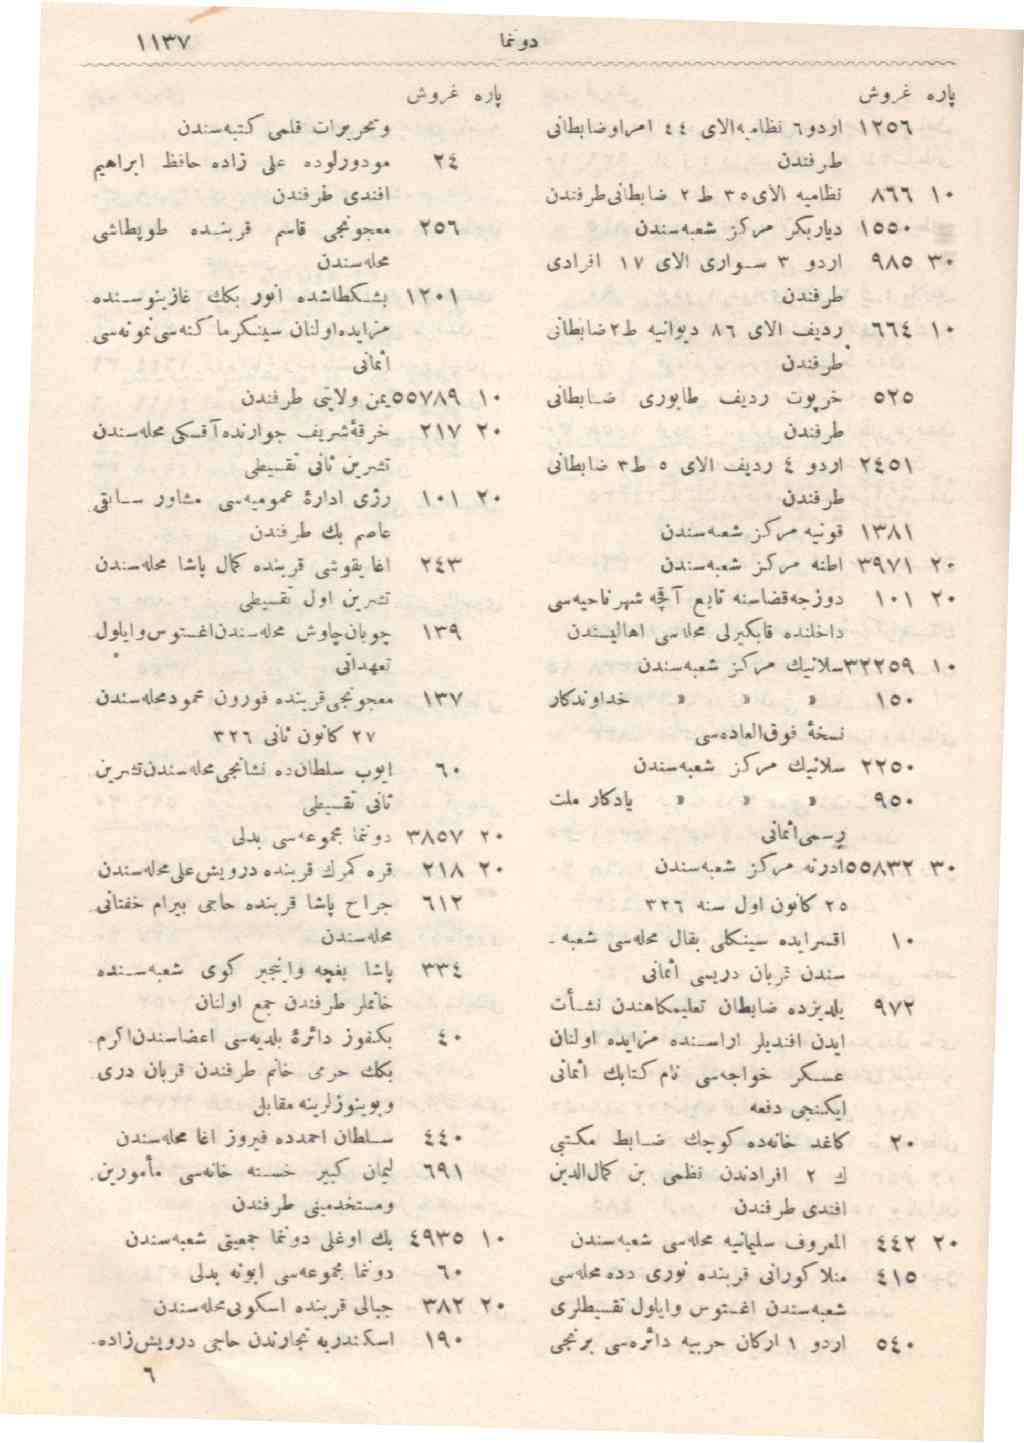 دونما ١١٣٧
پاره غروش
١٢٥٦ اردو ٦ نظاميه الاى ٤٤ امرا وضابطانى
طرفندن
١٠ ٨٦٦ نظاميه الاى ٣٥ ط ٢ ضابطانى طرفندن
١٥٥٠ دياربكر مركز شعبه سندن
٣٠ ٩٨٥ اردو ٣ سوارى الاى ١٧ افرادى
طرفندن
١٠ ٦٦٤ رديف الاى ٨٦ ديوانيه ط ٢ ضابطانى
طرفندن
٥٢٥ خرپوت رديف طابورى ضابطانى
طرفندن
٢٤٥١ اردو ٤ رديف الاى ٥ ط ٣ ضابطانى
طرفندن
١٣٨١ قونيه مركز شعبه سندن
٢٠ ٣٩٧١ اطنه مركز شعبه سندن
٢٠ ١٠١ دوزجه قضاسنه تابع آقچه شهر ناحيه سى
داخلنده قابكيرلى محله سى اهاليسندن
١٠ ٣٢٢٥٩ سلانيك مركز شعبه سندن
١٥٠ » » » خداوندكار
نسخۀ فوق العاده سى
٢٢٥٠ سلانيك مركز شعبه سندن
٩٥٠ » » » يادكار ملت
رسمى اثمانى
٣٠ ٥٥٨٣٢ ادرنه مركز شعبه سندن
٢٥ كانون اول سنه ٣٢٦
١٠ اقسرايده سينكلى بقال محله سى شعبه ـ
سندن قربان دريسى اثمانى
٩٧٢ يلديزده ضابطان تعليمكاهندن نشأت
ايدن افنديلر اراسنده مزايده اولنان
عسكر خواجه سى نام كتابك اثمانى
ايكنجى دفعه
٢٠ كاغد خانه ده كوچك ضابط مكتبى
ك ٢ افرادندن نظمى بن كمال الدين
افندى طرفندن
٢٠ ٤٤٢ المعروف سليمانيه محله سى شعبه سندن
٤١٥ منلا كورانى قربنده نورى دده محله سى
شعبه سندن اغستوس وايلول تقسيطلرى
٥٤٠ اردو ١ اركان حربيه دائره سى برنجى
پاره غروش
وتحريرات قلمى كتبه سندن
٢٤ مودورلوده على زاده حافظ ابراهيم
افندى طرفندن
٢٥٦ معجونجى قاسم قربنده طوپطاشى
محله سندن
١٢٠١ بشكطاشده انور بكك غازينوسنده
مزايده اولنان سينكرماكنه سى نمونه سى
اثمانى
١٠ ٥٥٧٨٩ يمن ولايتى طرفندن
٢٠ ٢١٧ خرقۀ شريف جوارنده آقسكى محله سندن
تشرين ثانى تقسيطى
٢٠ ١٠١ رژى ادارۀ عموميه سى مشاور سابقى
عاصم بك طرفندن
٢٤٣ اغا يقوشى قربنده كمال پاشا محله سندن
تشرين اول تقسيطى
١٣٩ چوبان چاوش محله سندن اغستوس وايلول
تعهداتى
١٣٧ معجونجى قربنده فورون محمود محله سندن
٢٧ كانون ثانى ٣٢٦
٦٠ ايوب سلطان ده نشانجى محله سندن تشرين
ثانى تقسيطى
٢٠ ٣٨٥٧ دونما مجموعه سى بدلى
٢٠ ٢١٨ قره كمرك قربنده درويش على محله سندن
٦١٢ جراح پاشا قربنده حاجى بيرام خفتانى
محله سندن
٣٣٤ پاشا بغچه وانجير كوى شعبه سنده
خانملر طرفندن جمع اولنان
٤٠ بكقوز دائرۀ بلديه سى اعضاسندن اكرم
بكك حرمى خانم طرفندن قربان درى
وبوينوزلرينه مقابل
٤٤٠ سلطان احمدده فيروز اغا محله سندن
٦٩١ ليمان كبير خسته خانه سى مأمورين
ومستخدمينى طرفندن
١٠ ٤٩٣٥ بك اوغلى دونما جمعيتى شعبه سندن
٦٠ دونما مجموعه سى ابونه بدلى
٢٠ ٣٨٢ جبالى قربنده اسكوبى محله سندن
١٩٠ اسكندريه تجارندن حاجى درويش زاده
٦